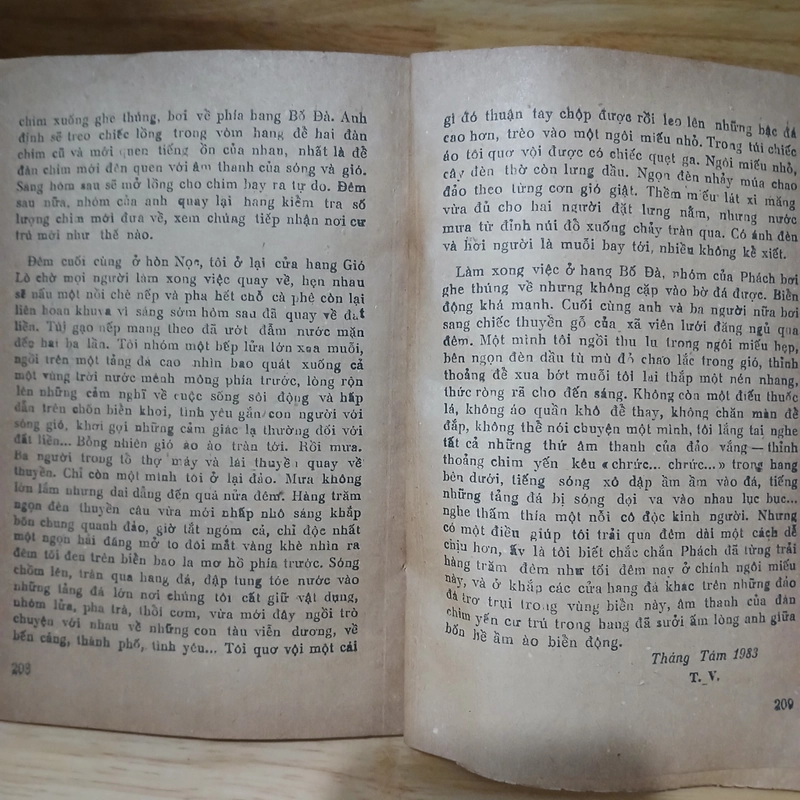 chim xuống ghe thúng, bơi về phía hang Bố Đà. Anh
định sẽ treo chiếc lồng trong vòm hang để hai đàn
chim cũ và mới quen tiếng ồn của nhau, nhất là để
đàn chim mới đến quen với âm thanh của sóng và gió.
Sáng hôm sau sẽ mở lồng cho chim bay ra tự do. Đêm
sau nữa, nhóm của anh quay lại hang kiểm tra số
lượng chim mới đưa về, xem chúng tiếp nhận nơi cư
trú mới như thế nào.
Đêm cuối cùng ở hòn Nọc, tôi ở lại cửa hang Gió
Lò chờ mọi người làm xong việc quay về, hẹn nhau
sẽ nấu một nồi chè nếp và pha hết chỗ cà phê còn lại
liên hoan khuya vì sáng sớm hôm sau đã quay về đất
liền. Túi gạo nếp mang theo đã ướt đẫm nước mặn
đến hai ba lần. Tôi nhóm một bếp lửa lớn xua muỗi,
ngồi trên một tảng đá cao nhìn bao quát xuống cả
một vùng trời nước mênh mông phía trước, lòng rộn
lên những cảm nghĩ về cuộc sống sôi động và hấp
dẫn trên chốn biển khơi, tình yêu gắn con người với
sóng gió, khơi gọi những cảm giác lạ thường đối với
đất liền... Bỗng nhiên gió ào ào tràn tới. Rồi mưa.
Ba người trong tổ thợ máy và lái thuyền quay về
thuyền. Chỉ còn một mình tôi ở lại đảo. Mưa không
lớn lắm nhưng dai dẳng đến quá nửa đêm. Hàng trăm
ngọn đèn thuyền câu vừa mới nhấp nhô sáng khắp
bốn chung quanh đảo, giờ tắt ngóm cả, chỉ độc nhất
một ngọn hải đăng mở to đôi mắt vàng khè nhìn ra
đêm tối đen trên biển bao la mơ hồ phía trước. Sóng
chồm lên, tràn qua hang đá, đập tung tóe nước vào
những tảng đá lớn nơi chúng tôi cất giữ vật dụng,
nhóm lửa, pha trà, thổi cơm, vừa mới đây ngồi trò
chuyện với nhau về những con tàu viễn dương, về
bến cảng, thành phố, tình yêu... Tôi quơ vội một cái
208
gì đó thuận tay chộp được rồi leo lên những bậc đá
cao hơn, trèo vào một ngôi miếu nhỏ. Trong túi chiếc
áo tôi quơ vội được có chiếc quẹt ga. Ngôi miếu nhỏ,
cây đèn thờ còn lưng dầu. Ngọn đèn nhảy múa chao
đảo theo từng cơn gió giật. Thềm miếu lát xi măng
vừa đủ cho hai người đặt lưng nằm, nhưng nước
mưa từ đỉnh núi đổ xuống chảy tràn qua. Có ánh đèn
và hơi người là muỗi bay tới, nhiều không kể xiết.
Làm xong việc ở hang Bố Đà, nhóm của Phách bơi
ghe thúng về nhưng không cặp vào bờ đá được. Biển
động khá mạnh. Cuối cùng anh và ba người nữa bơi
sang chiếc thuyền gỗ của xã viên lưới đăng ngủ qua
đêm. Một mình tôi ngồi thu lu trong ngôi miếu hẹp,
bên ngọn đèn dầu tù mù đỏ chao lắc trong gió, thỉnh
thoảng để xua bớt muỗi tôi lại thắp một nén nhang,
thức ròng rã cho đến sáng. Không còn một điếu thuốc
lá, không áo quần khô để thay, không chăn màn để
đắp, không thể nói chuyện một mình, tôi lắng tai nghe
tất cả những thứ âm thanh của đảo vắng — thỉnh
thoảng chim yến kêu « chrức... chrức... » trong hang
bên dưới, tiếng sóng xô dập ầm ầm vào đá, tiếng
những tảng đá bị sóng dọi va vào nhau lục bục...
nghe thấm thía một nỗi cô độc kinh người. Nhưng
có một điều giúp tôi trải qua đêm dài một cách dễ
chịu hơn, ấy là tôi biết chắc chắn Phách đã từng trải
hàng trăm đêm như tối đêm này ở chính ngôi miếu
này, và ở khắp các cửa hang đá khác trên những đảo
đá trơ trụi trong vùng biển này, âm thanh của đàn
chim yến cư trú trong hang đã sưởi ấm lòng anh giữa
bốn bề ầm ào biển động.
Tháng Tám 1983
T. V.
209